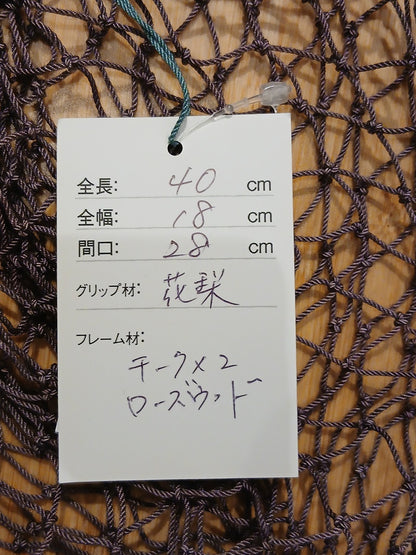 全長: 40 cm
全幅: 18 cm
間口: 28 cm
グリップ材: 花梨
フレーム材:
チーク×2
ローズウッド